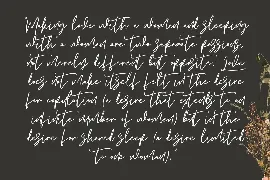 Making love with a woman and sleeping
with a woman are two separate passions,
not merely different but opposite. Love
does not make itself felt in the desire
for copulation (a desire that extends to an
infinite number of women) but in the
desire for shared sleep (a desire limited
to one woman).